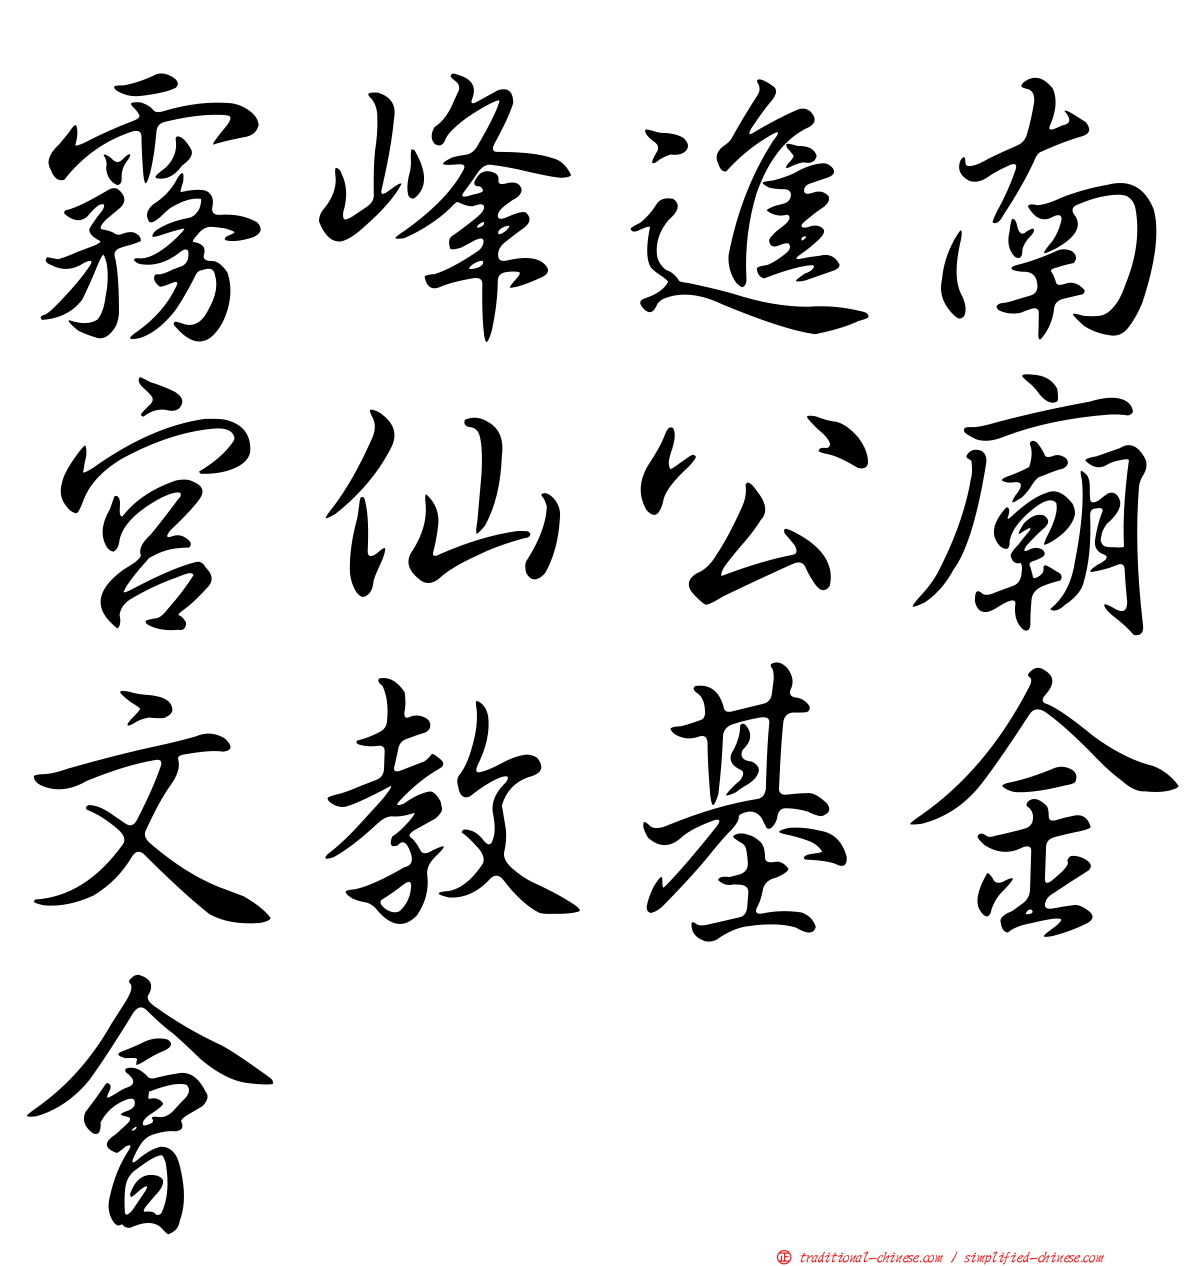 霧峰進南
宮仙公廟
文教基金
會
正 traditional-chinese.com / simplified-chinese.com